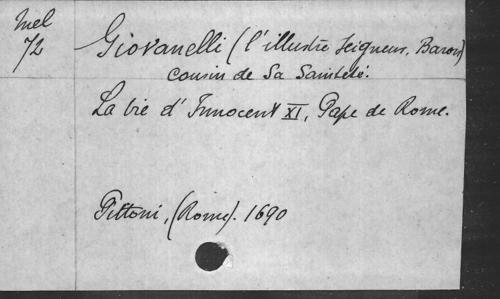 Mel
72
Giovanelli (l'illustre Seigneur, Baron)
cousin de Sa Sainteté.
La vie d'Innocent XI, Pape de Rome.
Pittoni, (Rome). 1690